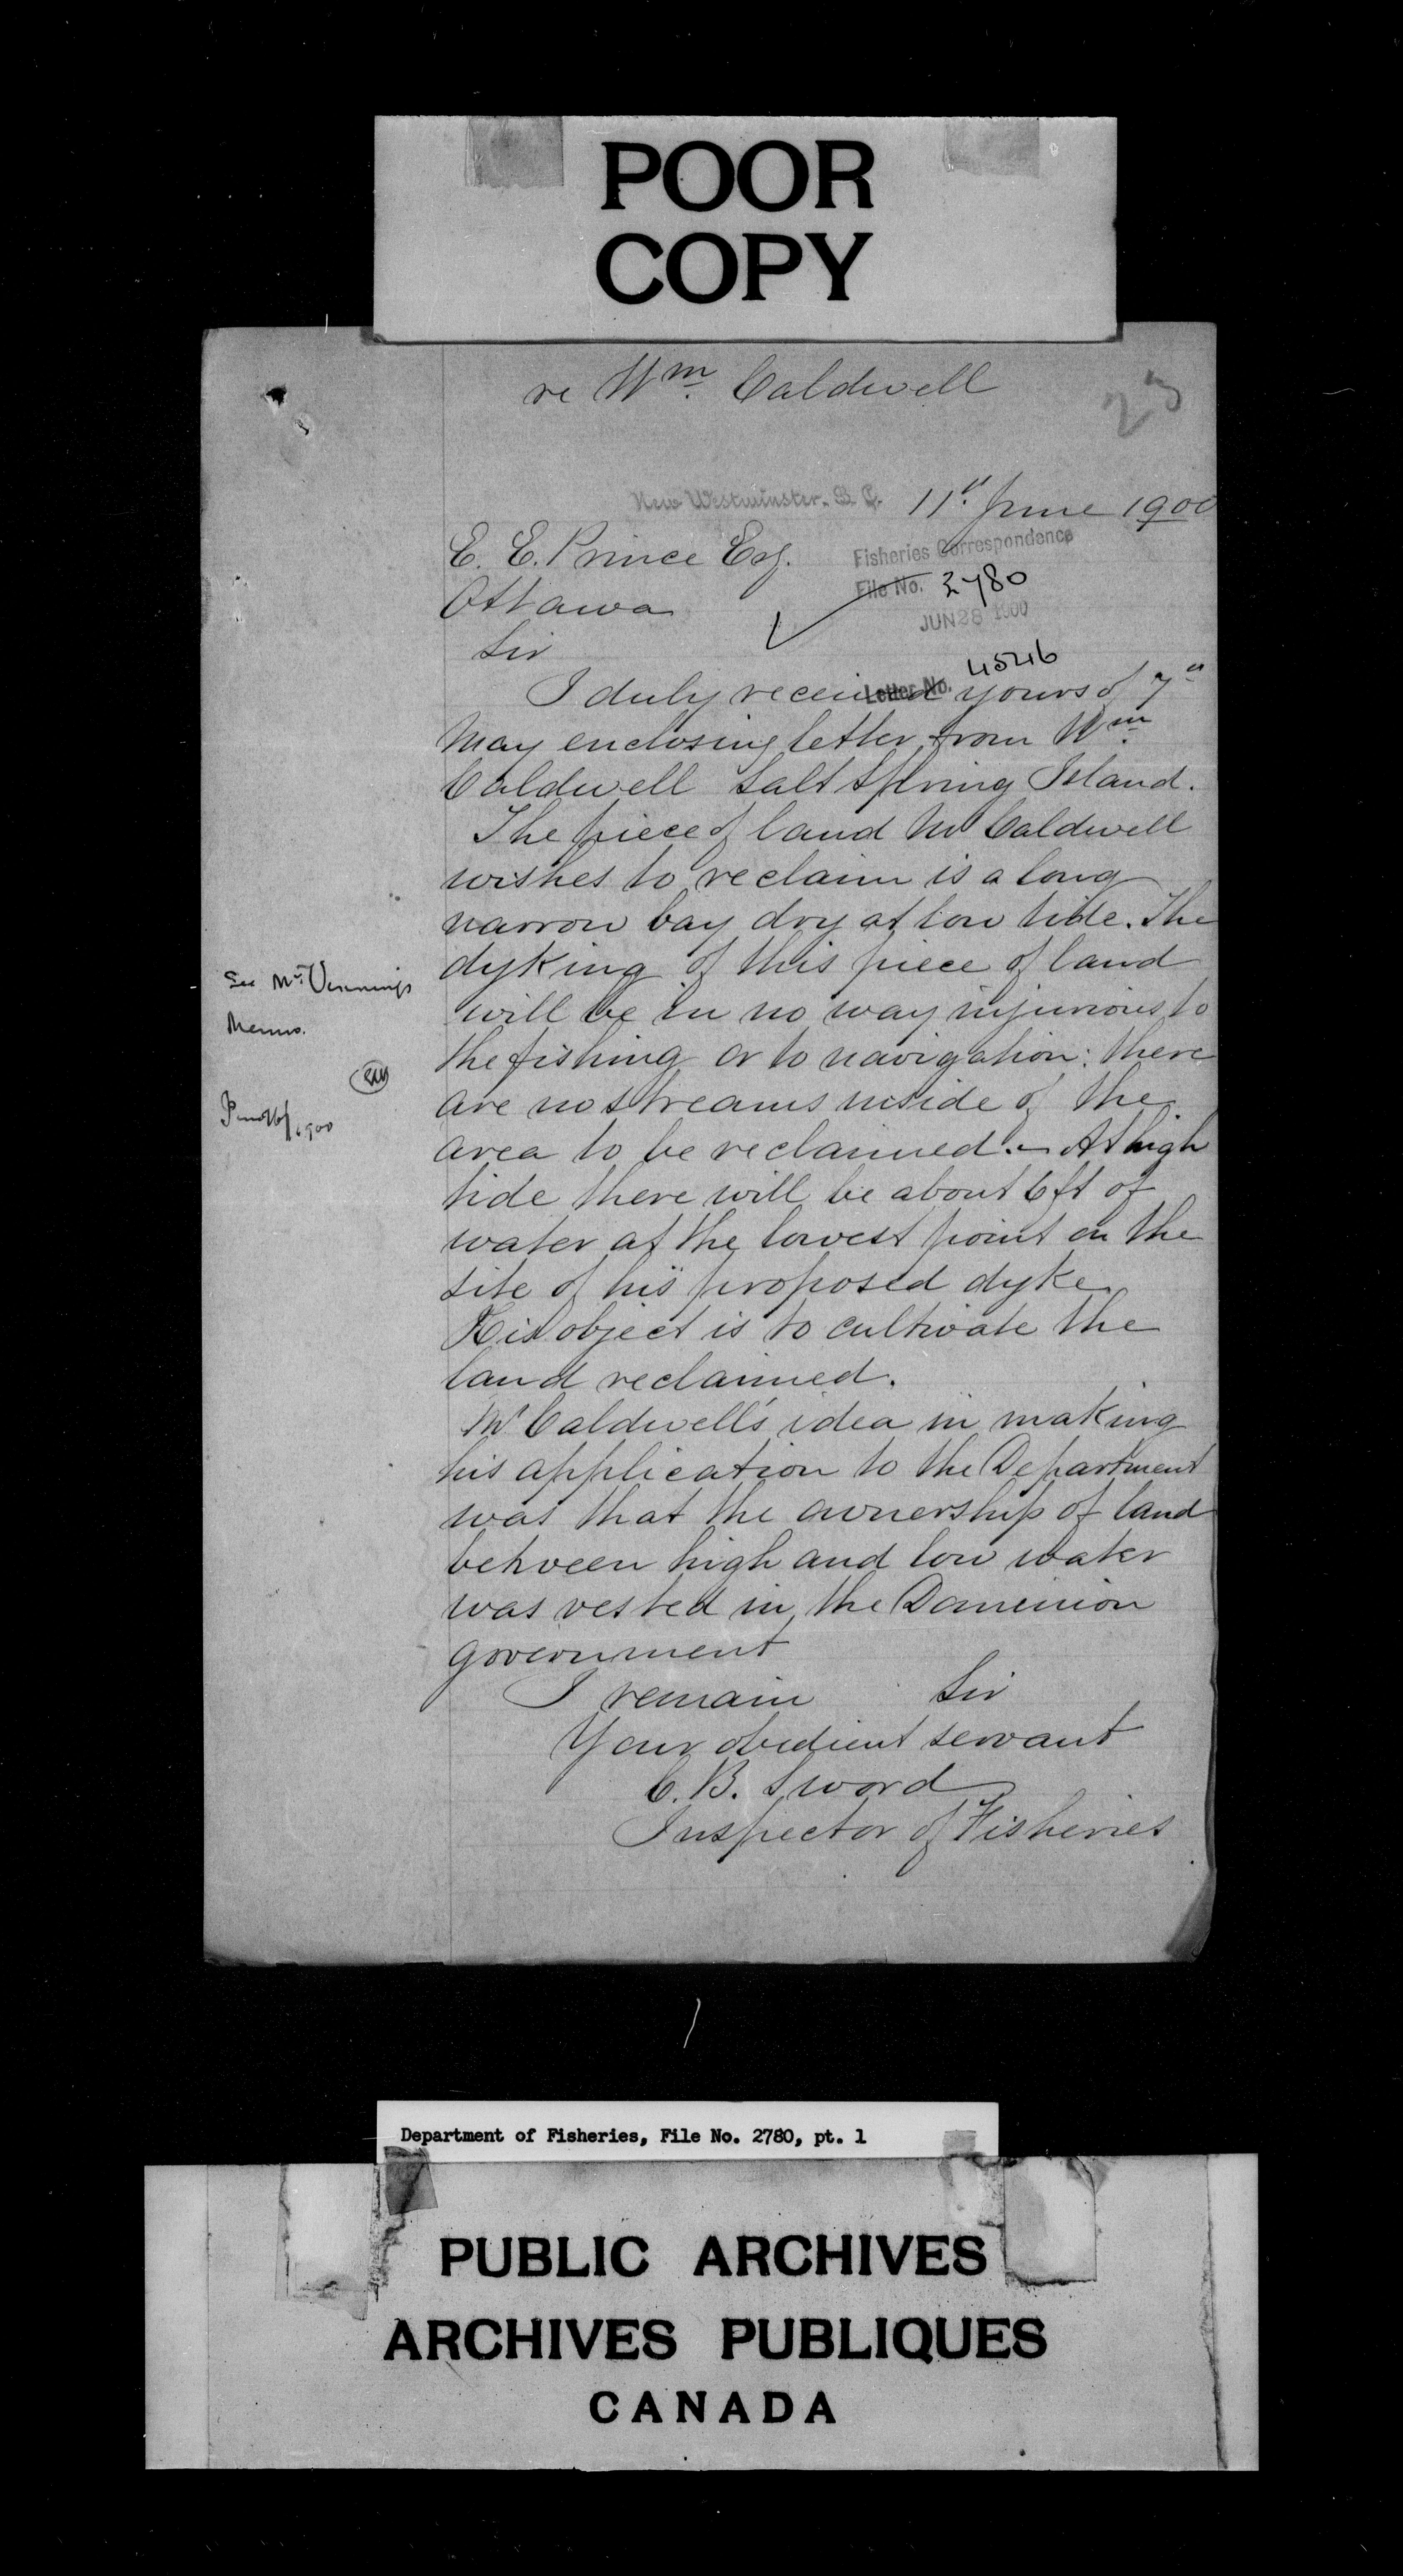 POOR
COPY
re Wm. Caldwell
23
New Westminster. B. C. 11th June 1900
E. E. Prince Esq.
Ottawa
Fisheries Correspondence
File No. 2780
JUN 28 1900
Sir
Letter No. 4546
I duly received yours of 7th
May enclosing letter from Wm.
Caldwell Salt Spring Island.
The piece of land Mr Caldwell
wishes to reclaim is a long
narrow bay dry at low tide. The
dyking of this piece of land
will be in no way injurious to
the fishing or to navigation: there
are no streams inside of the
area to be reclaimed. - At high
tide there will be about 6 ft of
water at the lowest point on the
site of his proposed dyke.
His object is to cultivate the
land reclaimed.
Mr Caldwell's idea in making
his application to the Department
was that the ownership of land
between high and low water
was vested in the Dominion
government
I remain Sir
Your obedient servant
C. B. Sword
Inspector of Fisheries
See Mr. Vennings
Memo.
1900
Department of Fisheries, File No. 2780, pt. 1
PUBLIC ARCHIVES
ARCHIVES PUBLIQUES
CANADA